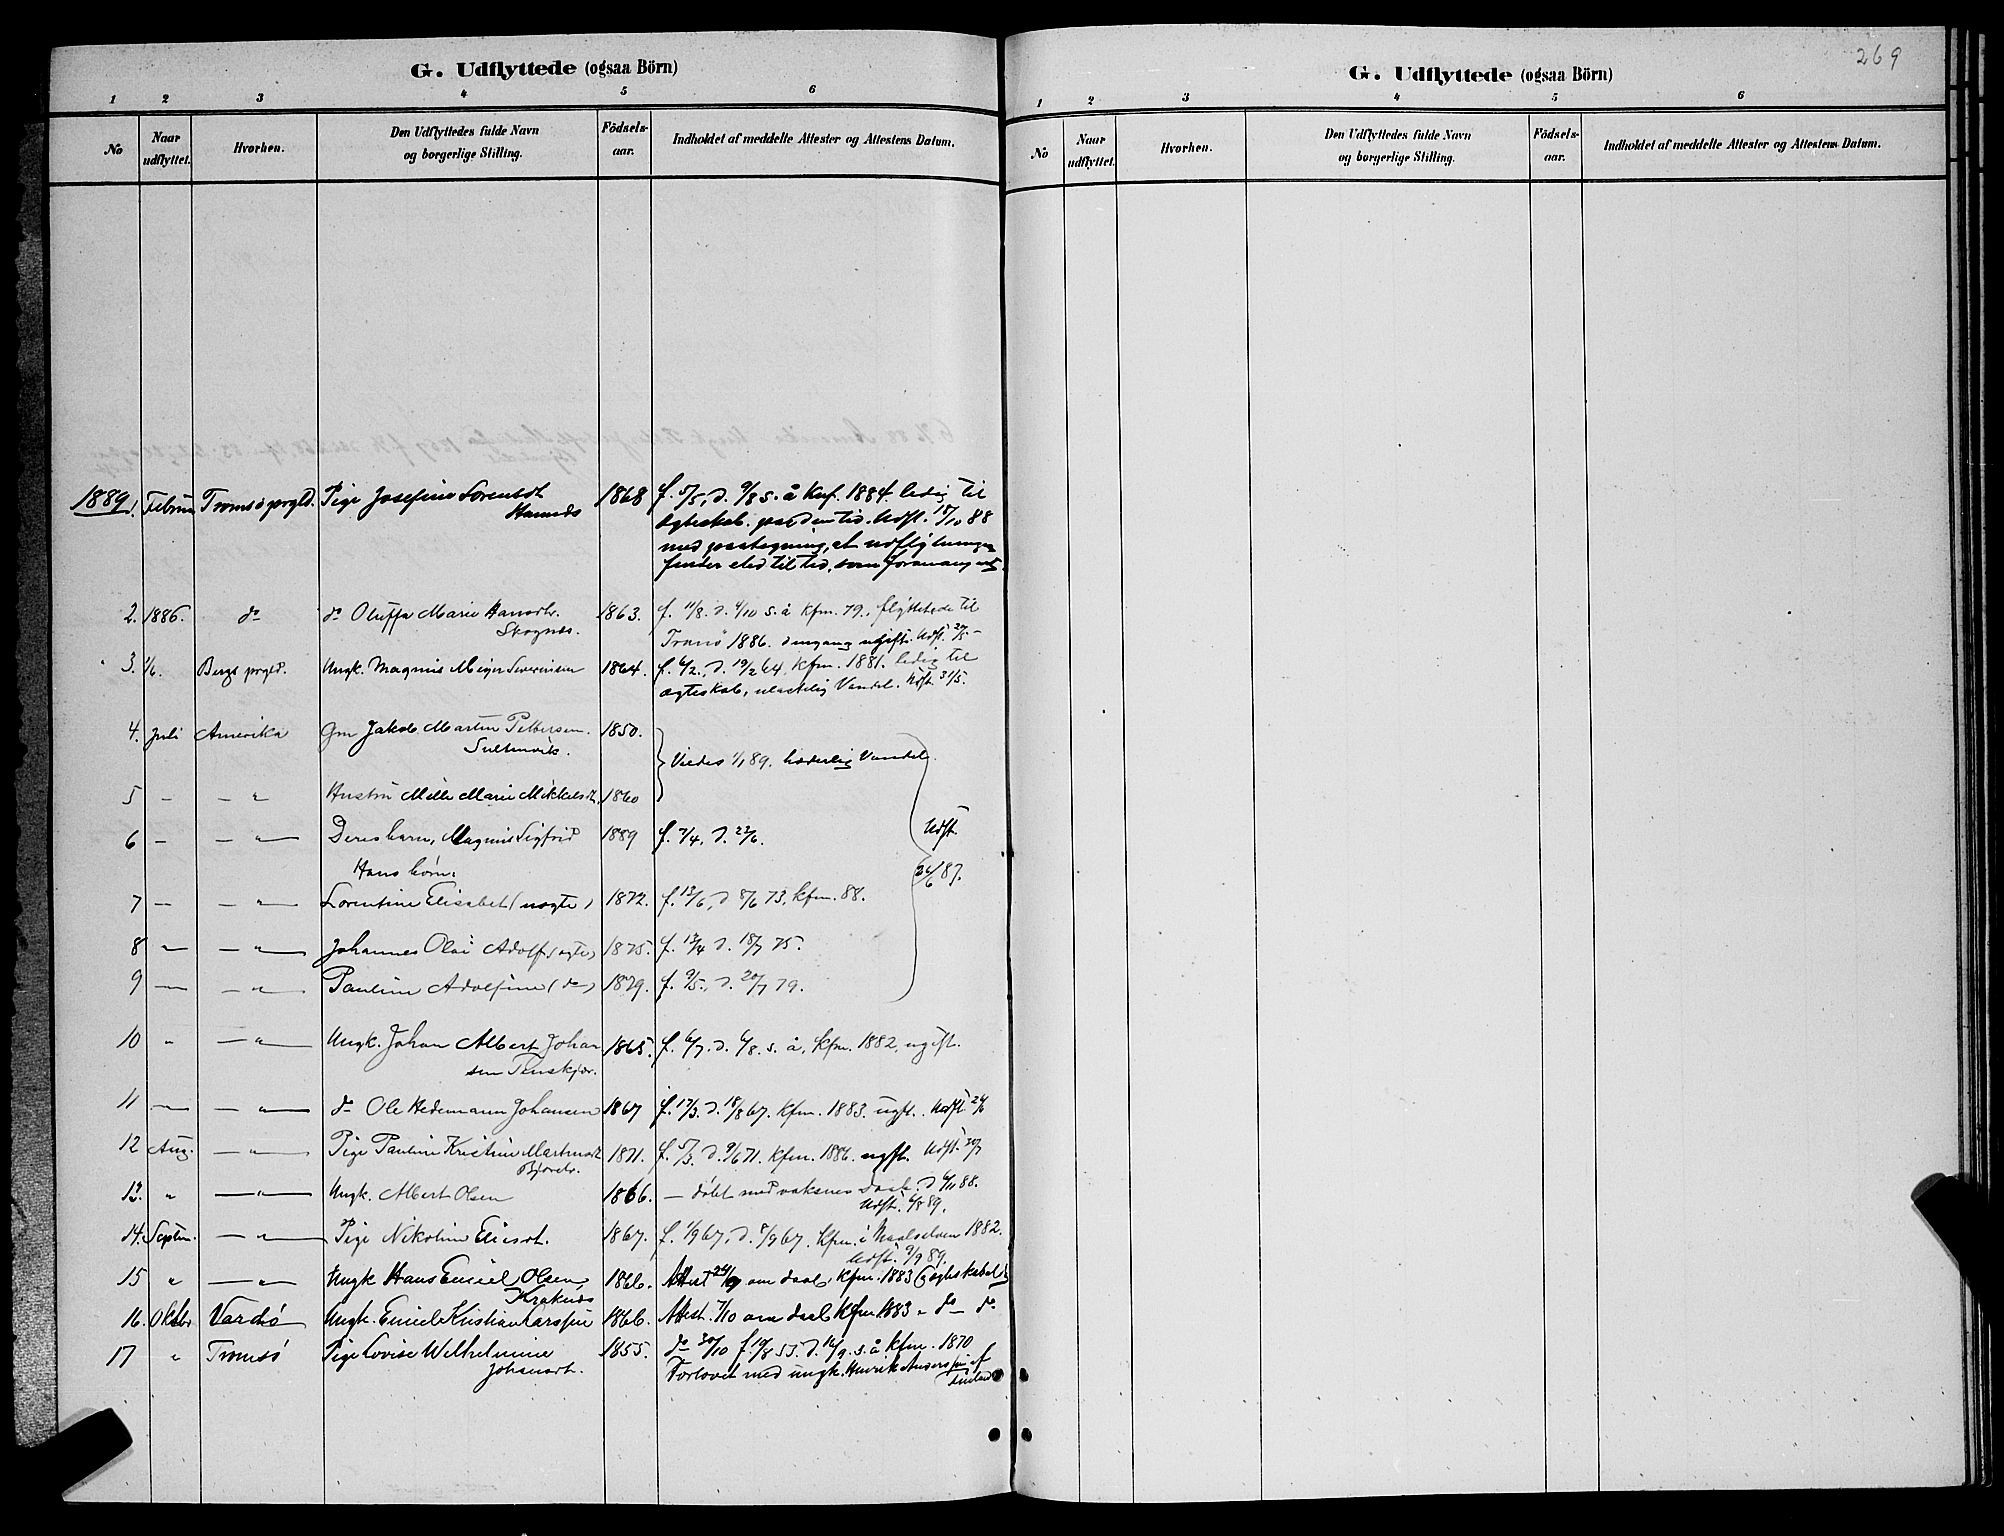 G. Udflyttede (ogsaa Börn)
1 2 3 4 5 6
No Naar udflyttet. Hvorhen. Den Udflyttedes fulde Navn og borgerlige Stilling. Födsels-aar. Indholdet af meddelte Attester og Attestens Datum.
1889
1. Februar Tromsö prgld. Pige Josefine Sorensdt 1868 f. 5/5, d. 9/8 s. å Knf. 1884. ledig til
Hansnes ægteskab. pas den tid. Udst. 18/10 88
med paategning, at udflytningen
finder sted til tid, som
2. 1886. do do Oluffa Marie Hansdtr. 1863. f. 11/8. d. 4/10 s. å kfm. 79. flyttede til
Skognes. Tromsö 1886. dengang ugift. Udst.
3. 1/6. Bergs prgld. Ungk. Magnus Meier Severinsen 1864. f. 6/2. d. 19/2 64. kfm. 1881. ledig til
ægteskab, ulastelig Vandel. Udst. 31/5.
4. Juli Amerika Gm Jakob Martin Pettersen. 1850.
Viedes 1/1 89. hæderlig Vandel.
5 — — " Hustru Mille Marie Mikkelsdt. 1860
6 — — " — Deres barn, Magnus Sigfrid 1889 f. 7/4, d. 23/6. Udst.
Hans börn: 26/6 87.
7 — — " — Lorentine Elisabet (uægte) 1872. f. 13/6, d 8/6 73, kfm. 88.
8 — — " — Johannes Olai Adolf (ægte) 1875. f. 13/4 d. 18/7 75.
9 — — " — Pauline Adolfine (do) 1879. f. 9/5, d. 20/7 79.
10 " — " — Ungk. Johan Albert Johan 1865. f. 6/7. d. 6/8. s. å, kfm. 1882, ugift.
sen
11 — — " — do Ole Hedemann Johansen 1867 f. 17/3. d. 18/8 67. kfm. 1883. ugft. Udst. 24/6
12 Aug. — " — Pige Pauline Kristine Martinsdt 1871. f. 5/3. d. 9/6 71. kfm. 1886. ugft. Udst. 30/7
13. " — " — Ungk. Albert Olsen 1866. — döbt med voksnes daab. d 4/11 88.
Udst. 6/8 89.
14. Septm. — " — Pige Nikoline Eliesdt. 1867. f. 1/9 67, d. 8/9 67. kfm. i Maalselven 1882.
Udst. 9/9 89.
15 " — " — Ungk Hans Emiel Olsen 1866. Attest 24/9 om daab, kfm. 1883 (
Kraknes
16. Oktbr Vardö Ungk. Emiel Kristian Larssen 1866. Attest. 7/10 om daab kfm 1883 - do — do
17 " Tromsö Pige Lovise Wilhelmine 1855. do 30/10 f. 19/8 55. d. 16/9. s. å kfm. 1870
Johansdt. Forlovet med ungk. Henrik Anderssen af
Finland
269
G. Udflyttede (ogsaa Börn)
1 2 3 4 5 6
No Naar udflyttet. Hvorhen. Den Udflyttedes fulde Navn og borgerlige Stilling. Födsels-aar. Indholdet af meddelte Attester og Attestens Datum.